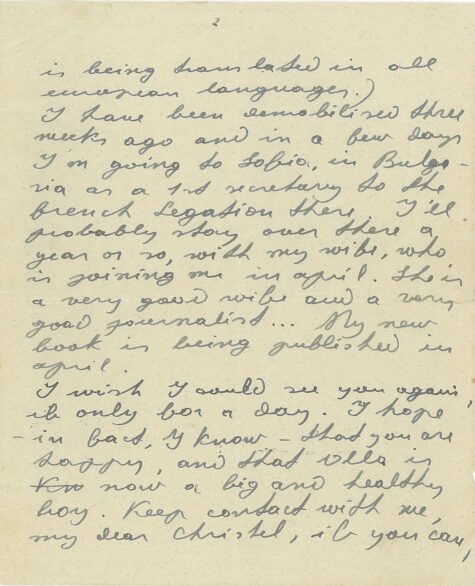 2
is being translated in all
european languages.)
I have been demobilised three
weeks ago and in a few days
I'm going to Sofia, in Bulga-
ria as a 1st secretary to the
french Legation there. I'll
probably stay over there a
year or so, with my wife, who
is joining me in april. She is
a very good wife and a very
good journalist... My new
book is being published in
april.
I wish I could see you again,
if only for a day. I hope
- in fact, I know - that you are
happy, and that Ulla is
now a big and healthy
boy. Keep contact with me,
my dear Christel, if you can,